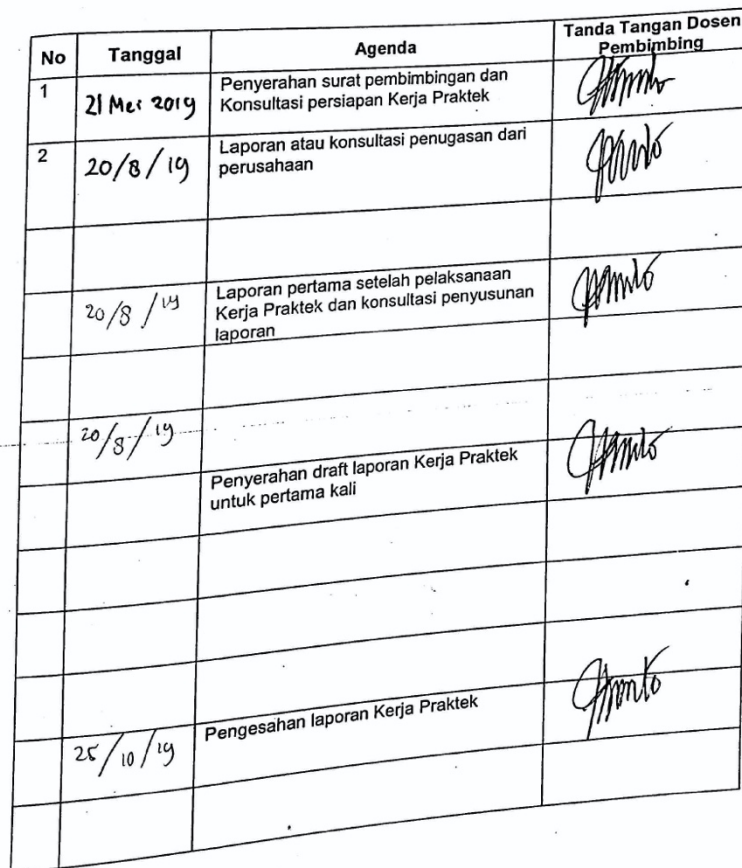 No Tanggal Agenda Tanda Tangan Dosen
Pembimbing
1 21 Mei 2019 Penyerahan surat pembimbingan dan
Konsultasi persiapan Kerja Praktek
2 20/8/19 Laporan atau konsultasi penugasan dari
perusahaan
20/8/19 Laporan pertama setelah pelaksanaan
Kerja Praktek dan konsultasi penyusunan
laporan
20/8/19
Penyerahan draft laporan Kerja Praktek
untuk pertama kali
25/10/19 Pengesahan laporan Kerja Praktek